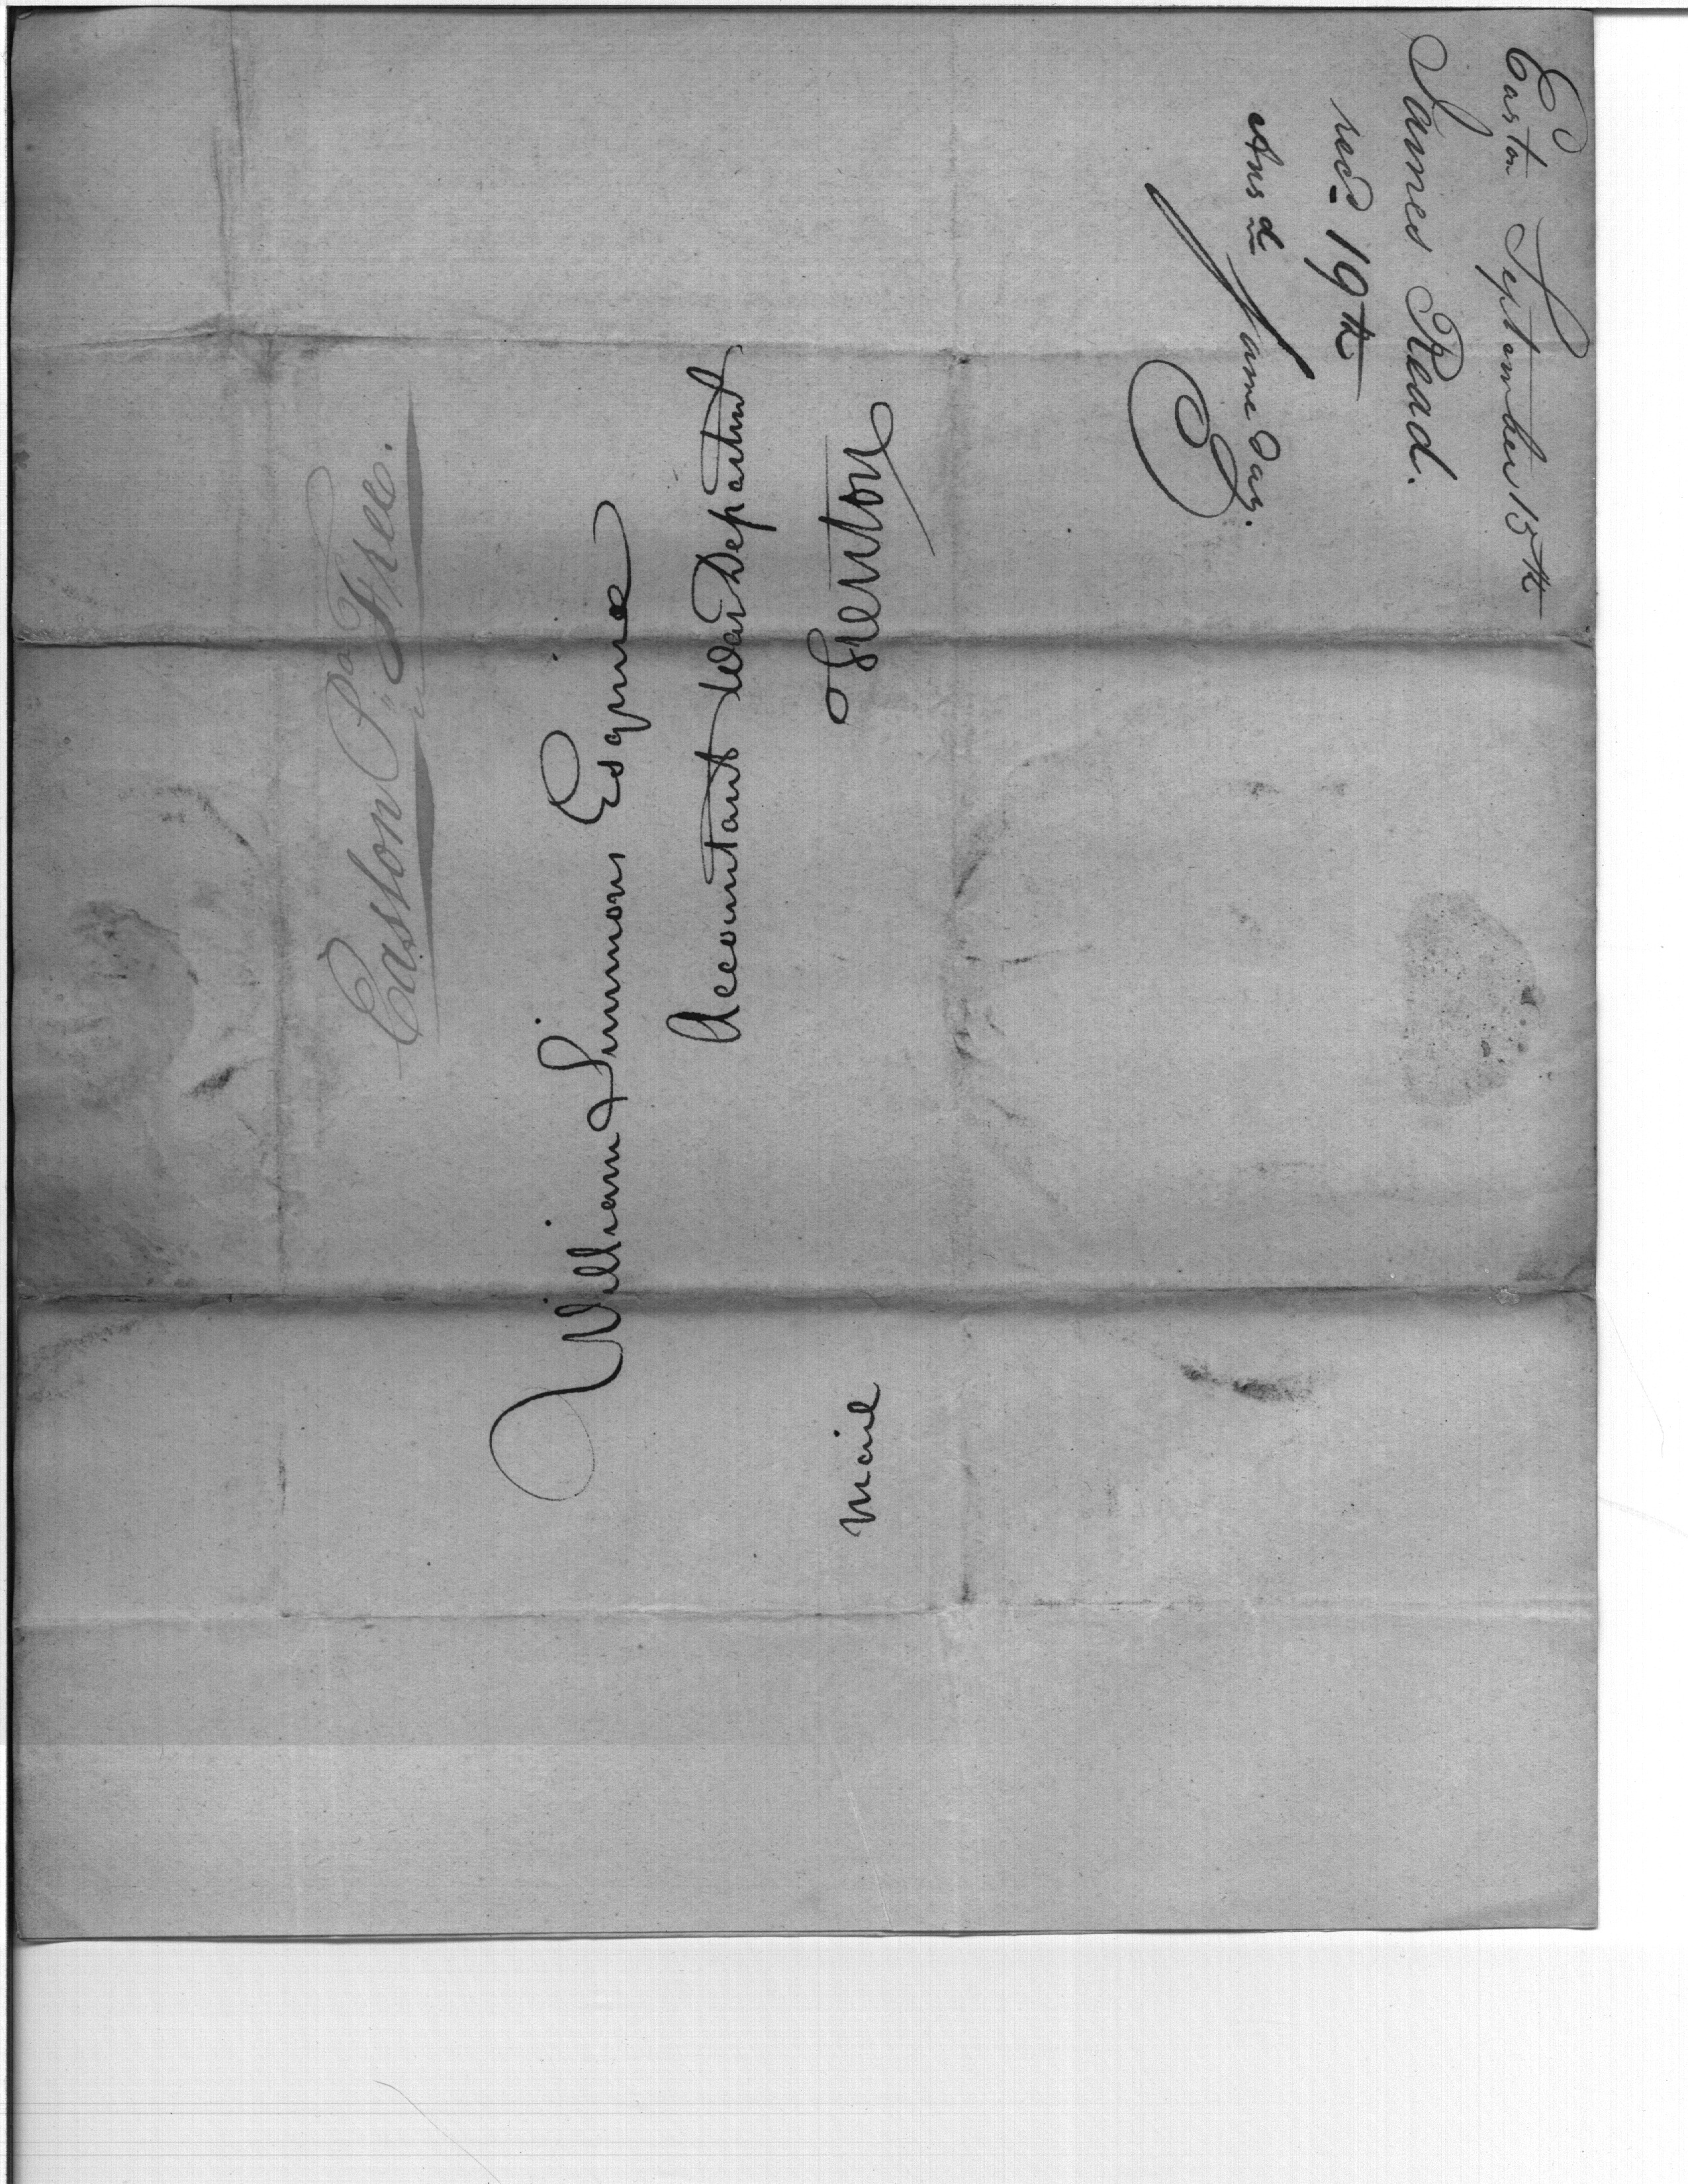 Easton September 15th
James Read.
recd 19th
Ansd same day.
Easton Pa Free.
William Simmons Esquire
Accountant War Department
Trenton
Mail